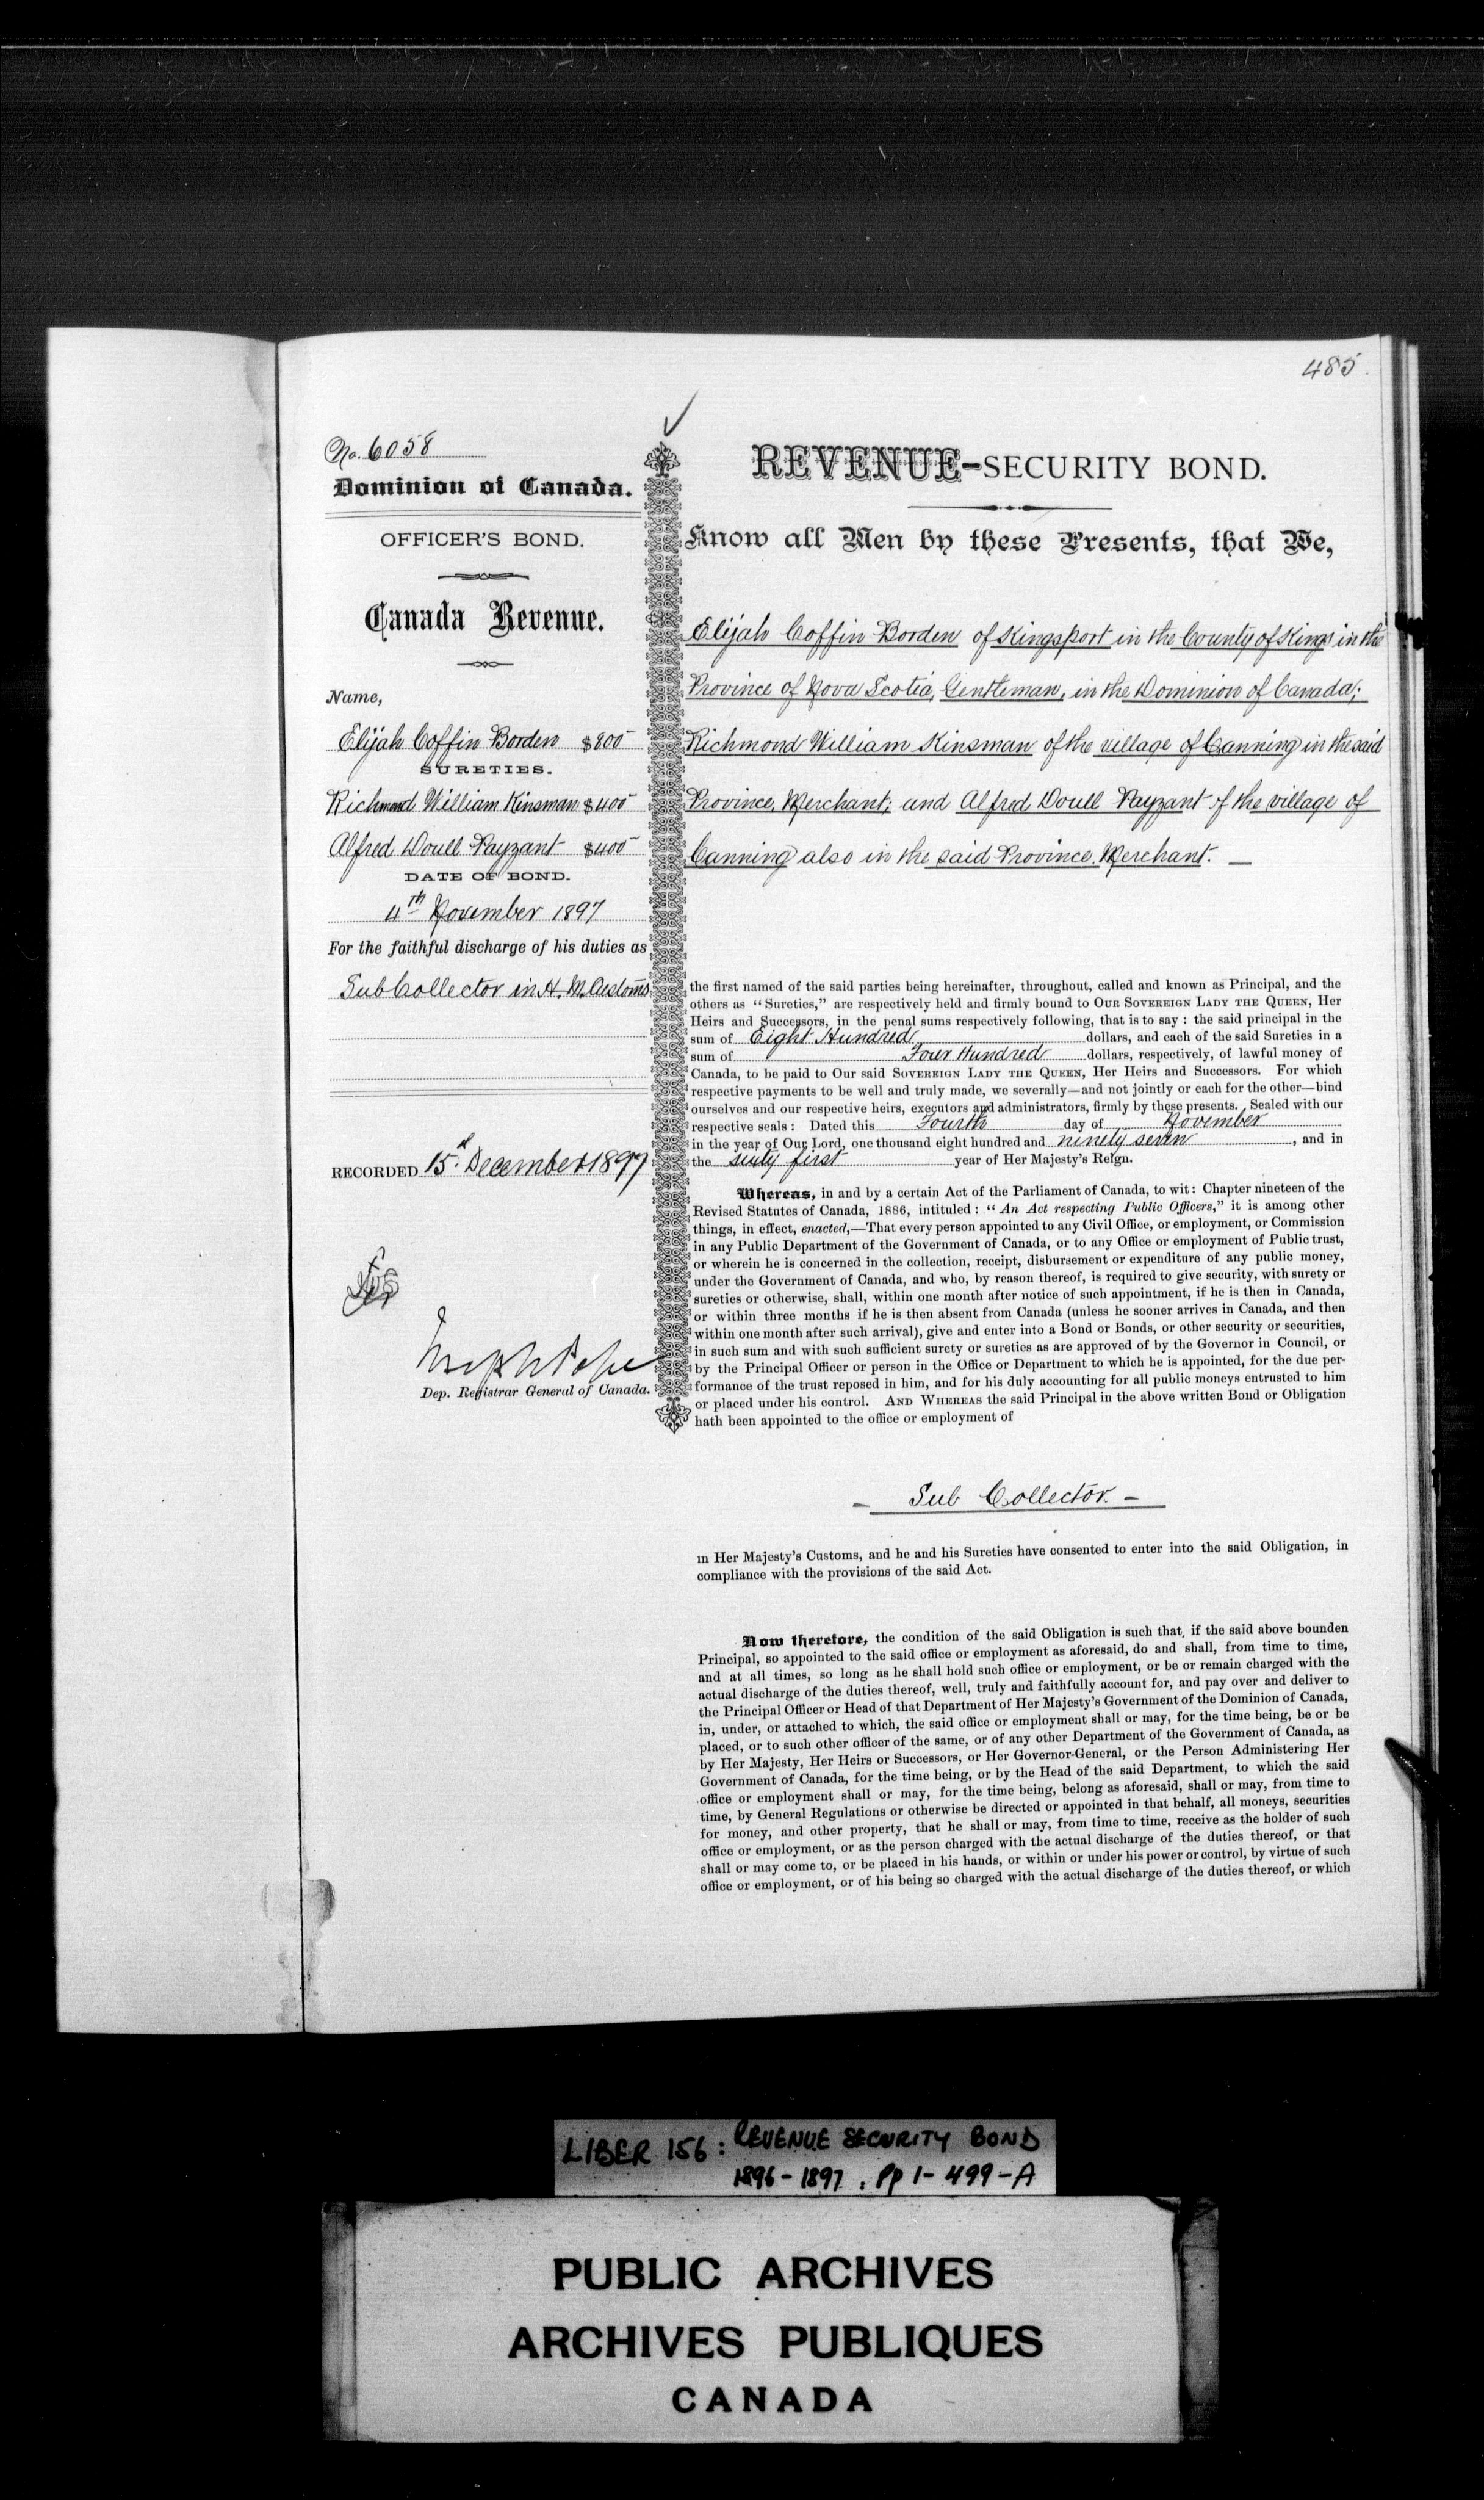 485.
No. 6058
Dominion of Canada.
OFFICER'S BOND.
Canada Revenue.
Name,
Elijah Coffin Borden $800
SURETIES.
Richmond William Kinsman $400
Alfred Doull Payzant $400
DATE OF BOND.
4th November 1897
For the faithful discharge of his duties as
Sub Collector in H. M. Customs
RECORDED 15th December 1897
Joseph Pope
Dep. Registrar General of Canada.
REVENUE-SECURITY BOND.
Know all Men by these Presents, that We,
Elijah Coffin Borden of Kingsport in the County of Kings in the
Province of Nova Scotia, Gentleman, in the Dominion of Canada;
Richmond William Kinsman of the village of Canning in the said
Province, Merchant; and Alfred Doull Payzant of the village of
Canning also in the said Province, Merchant. —
the first named of the said parties being hereinafter, throughout, called and known as Principal, and the
others as "Sureties," are respectively held and firmly bound to OUR SOVEREIGN LADY THE QUEEN, Her
Heirs and Successors, in the penal sums respectively following, that is to say: the said principal in the
sum of Eight Hundred dollars, and each of the said Sureties in a
sum of Four Hundred dollars, respectively, of lawful money of
Canada, to be paid to Our said SOVEREIGN LADY THE QUEEN, Her Heirs and Successors. For which
respective payments to be well and truly made, we severally—and not jointly or each for the other—bind
ourselves and our respective heirs, executors and administrators, firmly by these presents. Sealed with our
respective seals: Dated this Fourth day of November
in the year of Our Lord, one thousand eight hundred and ninety seven, and in
the sixty first year of Her Majesty's Reign.
Whereas, in and by a certain Act of the Parliament of Canada, to wit: Chapter nineteen of the
Revised Statutes of Canada, 1886, intituled: "An Act respecting Public Officers," it is among other
things, in effect, enacted,—That every person appointed to any Civil Office, or employment, or Commission
in any Public Department of the Government of Canada, or to any Office or employment of Public trust,
or wherein he is concerned in the collection, receipt, disbursement or expenditure of any public money,
under the Government of Canada, and who, by reason thereof, is required to give security, with surety or
sureties or otherwise, shall, within one month after notice of such appointment, if he is then in Canada,
or within three months if he is then absent from Canada (unless he sooner arrives in Canada, and then
within one month after such arrival), give and enter into a Bond or Bonds, or other security or securities,
in such sum and with such sufficient surety or sureties as are approved of by the Governor in Council, or
by the Principal Officer or person in the Office or Department to which he is appointed, for the due per-
formance of the trust reposed in him, and for his duly accounting for all public moneys entrusted to him
or placed under his control. AND WHEREAS the said Principal in the above written Bond or Obligation
hath been appointed to the office or employment of
— Sub Collector. —
in Her Majesty's Customs, and he and his Sureties have consented to enter into the said Obligation, in
compliance with the provisions of the said Act.
Now therefore, the condition of the said Obligation is such that, if the said above bounden
Principal, so appointed to the said office or employment as aforesaid, do and shall, from time to time,
and at all times, so long as he shall hold such office or employment, or be or remain charged with the
actual discharge of the duties thereof, well, truly and faithfully account for, and pay over and deliver to
the Principal Officer or Head of that Department of Her Majesty's Government of the Dominion of Canada,
in, under, or attached to which, the said office or employment shall or may, for the time being, be or be
placed, or to such other officer of the same, or of any other Department of the Government of Canada, as
by Her Majesty, Her Heirs or Successors, or Her Governor-General, or the Person Administering Her
Government of Canada, for the time being, or by the Head of the said Department, to which the said
office or employment shall or may, for the time being, belong as aforesaid, shall or may, from time to
time, by General Regulations or otherwise be directed or appointed in that behalf, all moneys, securities
for money, and other property, that he shall or may, from time to time, receive as the holder of such
office or employment, or as the person charged with the actual discharge of the duties thereof, or that
shall or may come to, or be placed in his hands, or within or under his power or control, by virtue of such
office or employment, or of his being so charged with the actual discharge of the duties thereof, or which
LIBER 156: REVENUE SECURITY BOND
1896-1897. Pp 1-499-A
PUBLIC ARCHIVES
ARCHIVES PUBLIQUES
CANADA